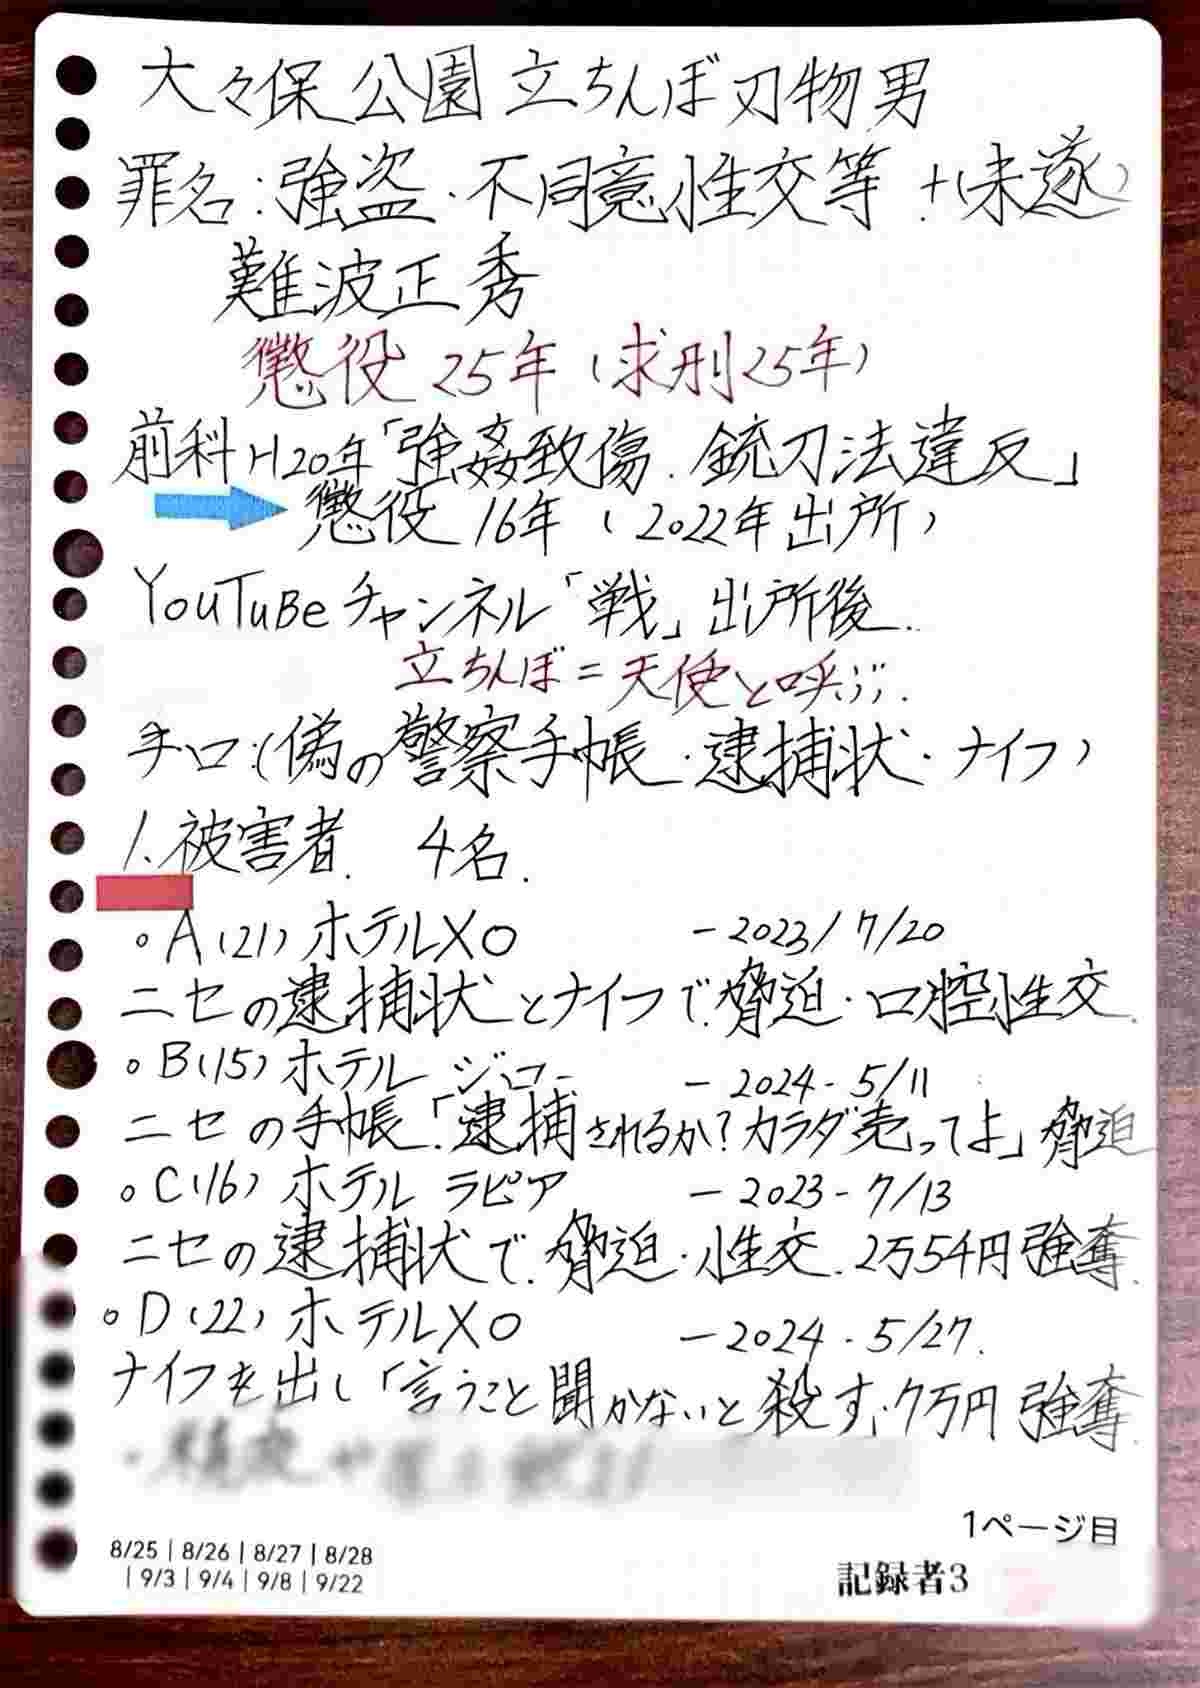 大々保公園立ちんぼ刃物男
罪名:強盗・不同意性交等+(未遂)
難波正秀
懲役25年(求刑25年)
前科H20年「強姦致傷.銃刀法違反」
懲役16年(2022年出所)
YouTuBeチャンネル「戦」出所後.
立ちんぼ=天使と呼ぶ.
手口:(偽の警察手帳・逮捕状・ナイフ)
1.被害者. 4名.
。A(21)ホテルXO -2023/7/20
ニセの逮捕状とナイフで.脅迫・口腔性交.
。B(15)ホテル ジロー - 2024-5/11
ニセの手帳.「逮捕されるか?カラダ売ってよ」脅迫
。C(16)ホテル ラピア - 2023-7/13
ニセの逮捕状で.脅迫・性交.2万54円強奪.
。D(22)ホテルXO -2024-5/27.
ナイフを出し「言うこと聞かないと殺す,7万円強奪.
1ページ目
8/25 | 8/26 | 8/27 | 8/28
| 9/3 | 9/4 | 9/8 | 9/22
記録者3